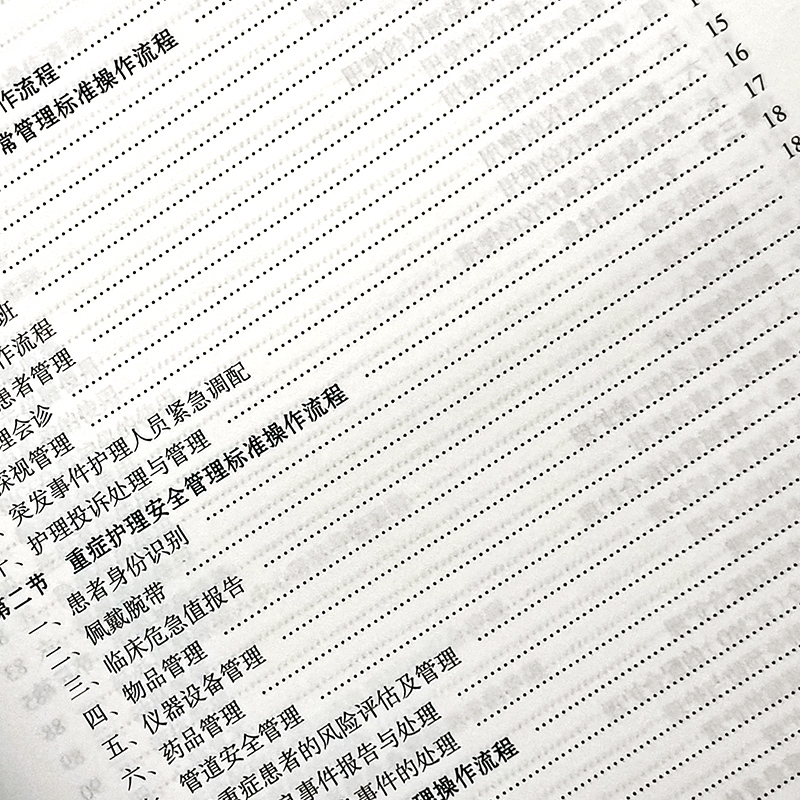 作流程
常管理标准操作流程
15
16
17
18
18
班
作流程
患者管理
理会诊
探视管理
突发事件护理人员紧急调配
十、护理投诉处理与管理
第二节 重症护理安全管理标准操作流程
一、患者身份识别
二、佩戴腕带
三、临床危急值报告
四、物品管理
五、仪器设备管理
六、药品管理
管道安全管理
重症患者的风险评估及管理
事件报告与处理
事件的处理
理操作流程